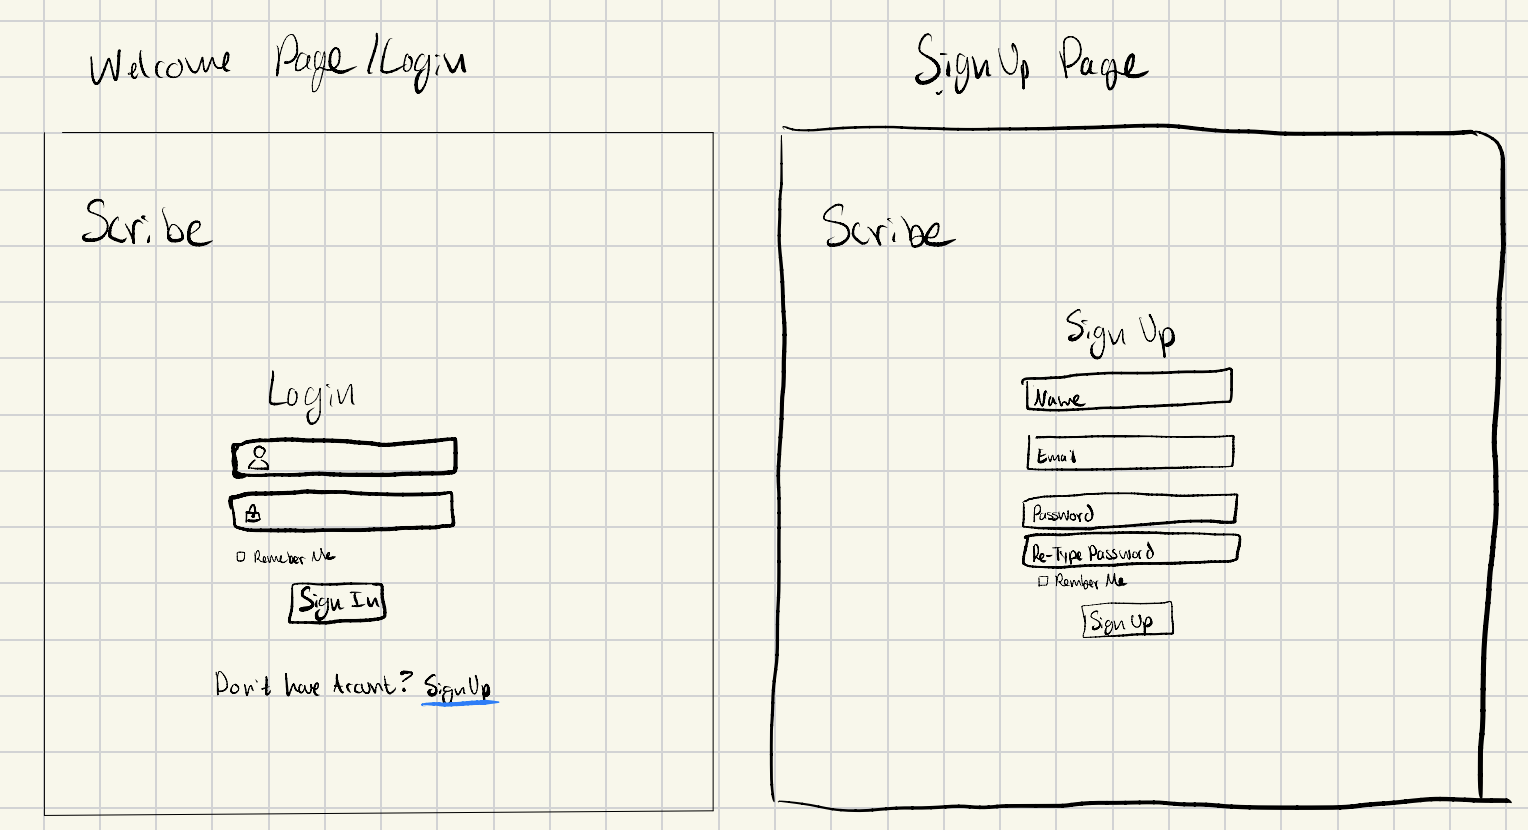 Welcome Page/Login
Scribe
Login
Remeber Me
Sign In
Don't have Acount? SignUp
SignUp Page
Scribe
Sign Up
Name
Email
Password
Re-Type Password
Rember Me
Sign Up